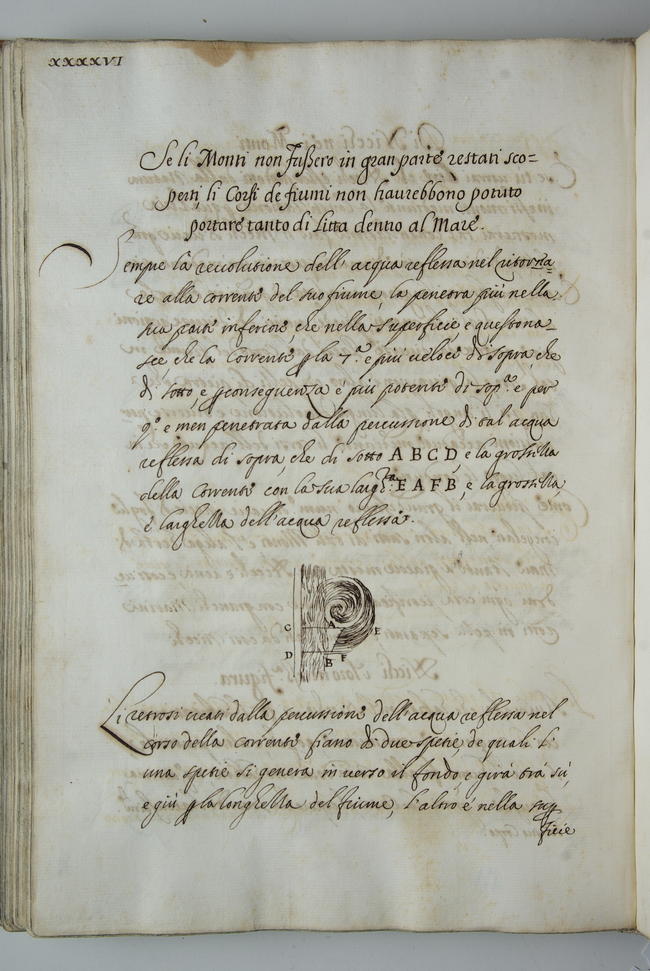 XXXXVI
Se li Monti non fußero in gran parte restati sco=
perti, li Corsi de fiumi non haurebbono potuto
portare tanto di Litta dentro al Mare.
Sempre la reuolutione dell'acqua reflessa nel ritorna=
re alla corrente del suo fiume la penetra più nella
sua parte inferiore, che nella superficie, e questo na=
sce che la Corrente p la 7.ª e più veloce di sopra, che
di sotto, e p conseguenza è più potente di sop.ª e per
q.º e men penetrata dalla percussione di tal acqua
reflessa di sopra, che di sotto A B C D, e la grossezza
della Corrente con la sua largh.ª E A F B, e la grossezza,
e larghezza dell'acqua reflessa.
C A E
D B F
Li retrosi creati dalla percussione dell'acqua reflessa nel
corso della corrente fiano di due spetie, de quali l'
una spetie si genera in verso il fondo, e gira trà sù,
e giù p la longhezza del fiume, l'altro è nella sup
ficie